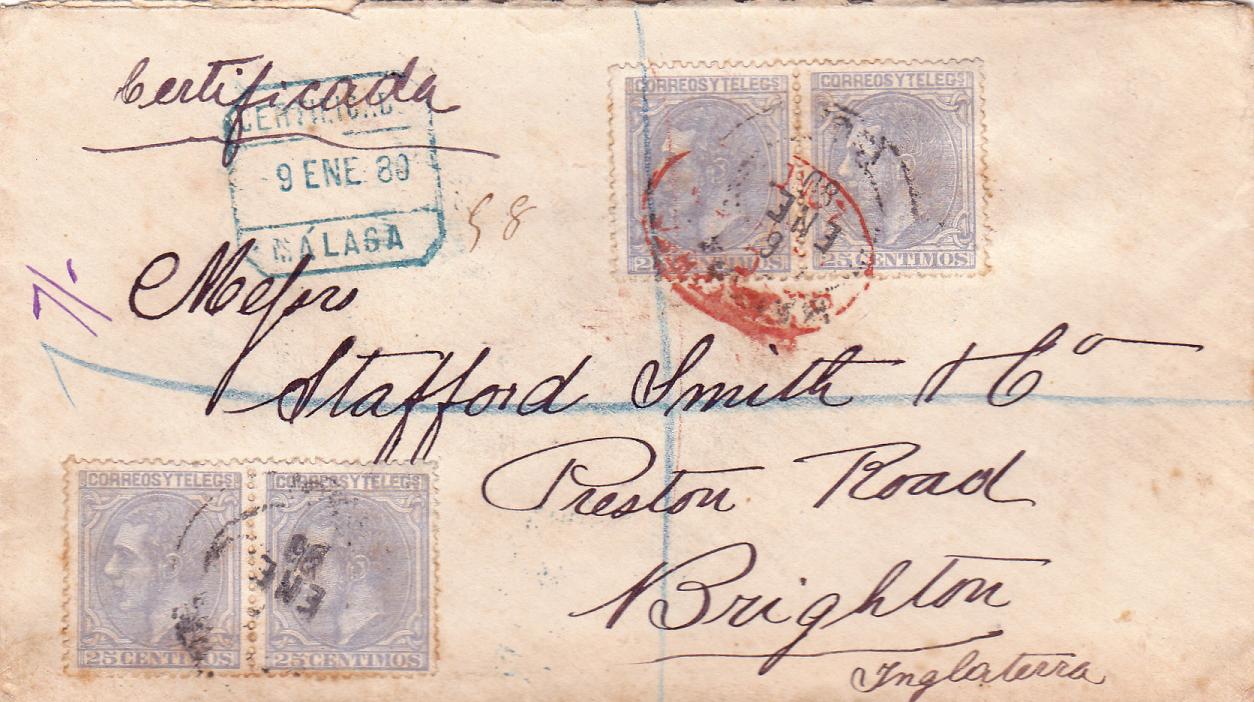 Certificada
CERTIFICADO
9 ENE 80
MÁLAGA
98
CORREOS Y TELEGS
CORREOS Y TELEGS
25 CENTIMOS
25 CENTIMOS
ENE
80
7/.
Messrs
Stafford Smith & Co
Preston Road
Brighton
Inglaterra
CORREOS Y TELEGS
CORREOS Y TELEGS
25 CENTIMOS
25 CENTIMOS
ENE
80